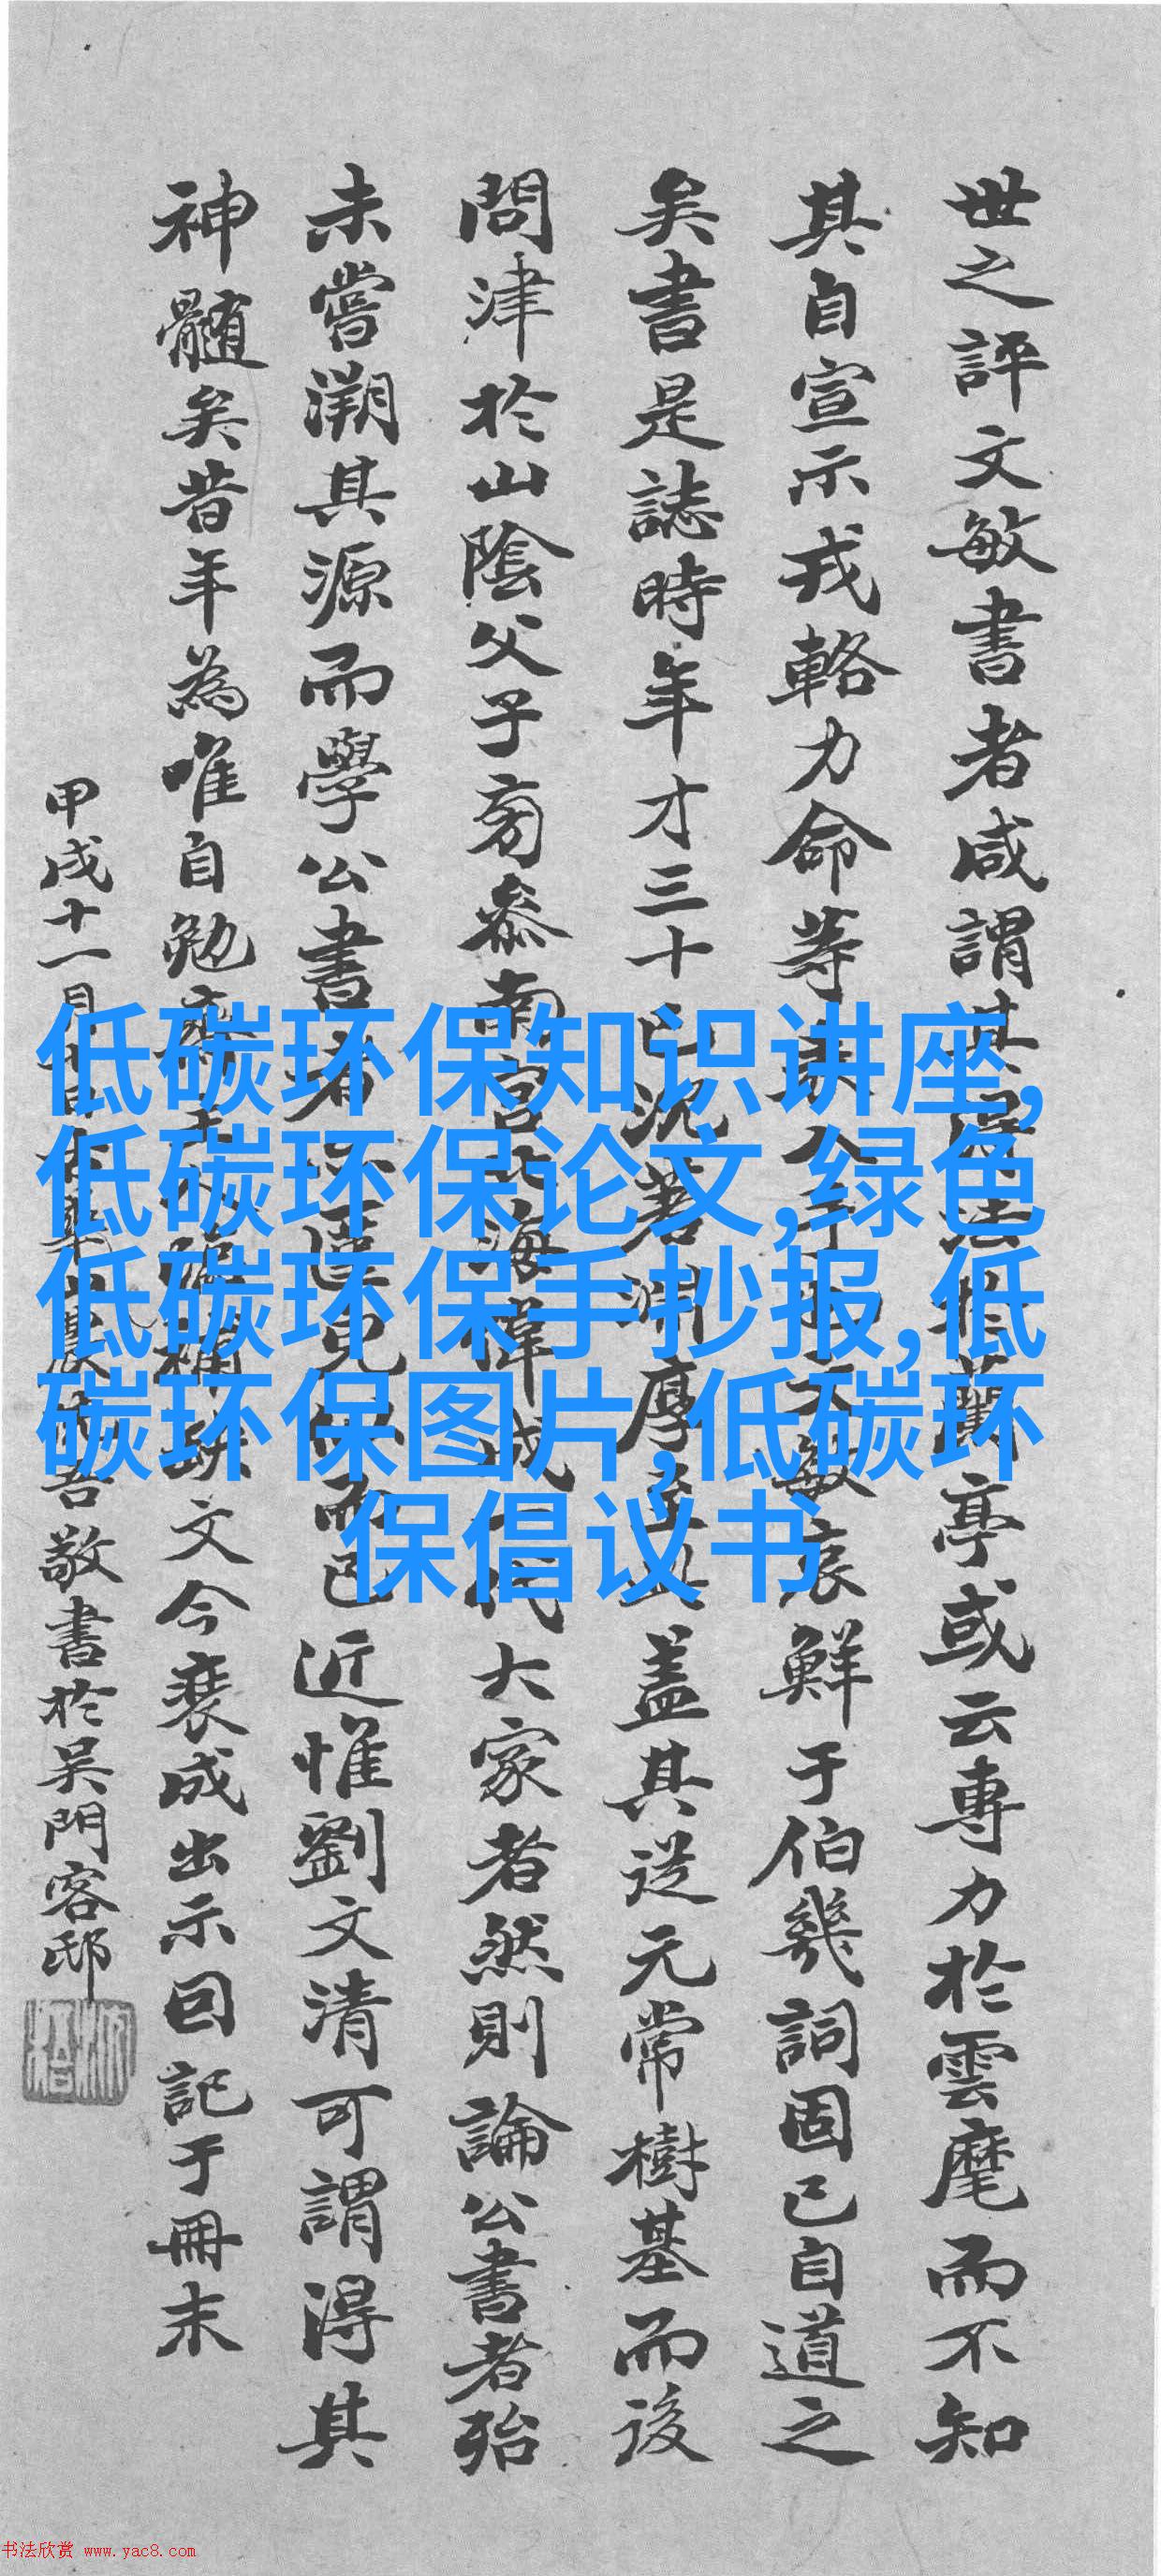 世之評文敏書者咸謂其得法於蘭亭或云專力於雲麾而不知
其自宣示戎輅力命等表入手文敏哀鮮于伯幾詞固已自道之
矣書是誌時年才三十已沉著淵厚至此蓋其從元常樹基而後
問津於山陰父子旁參南宮北海偉成一代大家者然則論公書者殆
未嘗溯其源而學公書者而已近惟劉文清可謂得其
神髓矣昔年為唯自勉齋補缺文今裒成出示囙記于冊末
甲戌十一月吾敬書於吳門客邸
低碳环保知识讲座,
低碳环保论文,绿色
低碳环保手抄报,低
碳环保图片,低碳环
保倡议书
书法欣赏 www.yac8.com